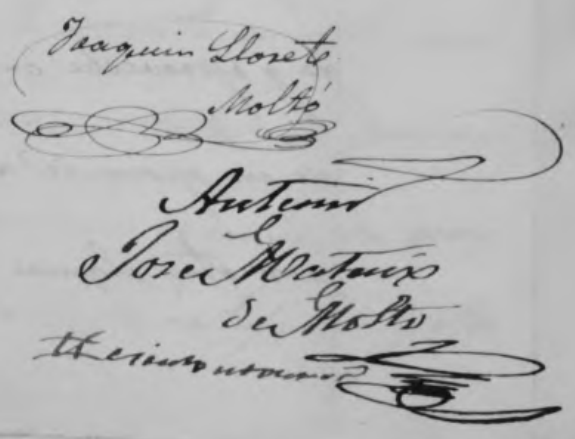 Joaquin Llorete
Moltó
Antoni
Jose Mataix
de Molto